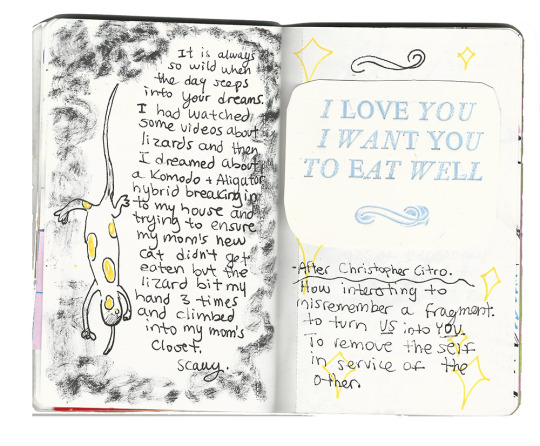 It is always
so wild when
the day seeps
into your dreams.
I had watched
some videos about
lizards and then
I dreamed about
a Komodo + Aligator
hybrid breaking in
to my house and
trying to ensure
my mom's new
cat didn't get
eaten but the
lizard bit my
hand 3 times
and climbed
into my mom's
closet.
scary.
I LOVE YOU
I WANT YOU
TO EAT WELL
-After Christopher Citro.
How interesting to
misremember a fragment.
to turn US into YOU.
To remove the self
in service of the
other.